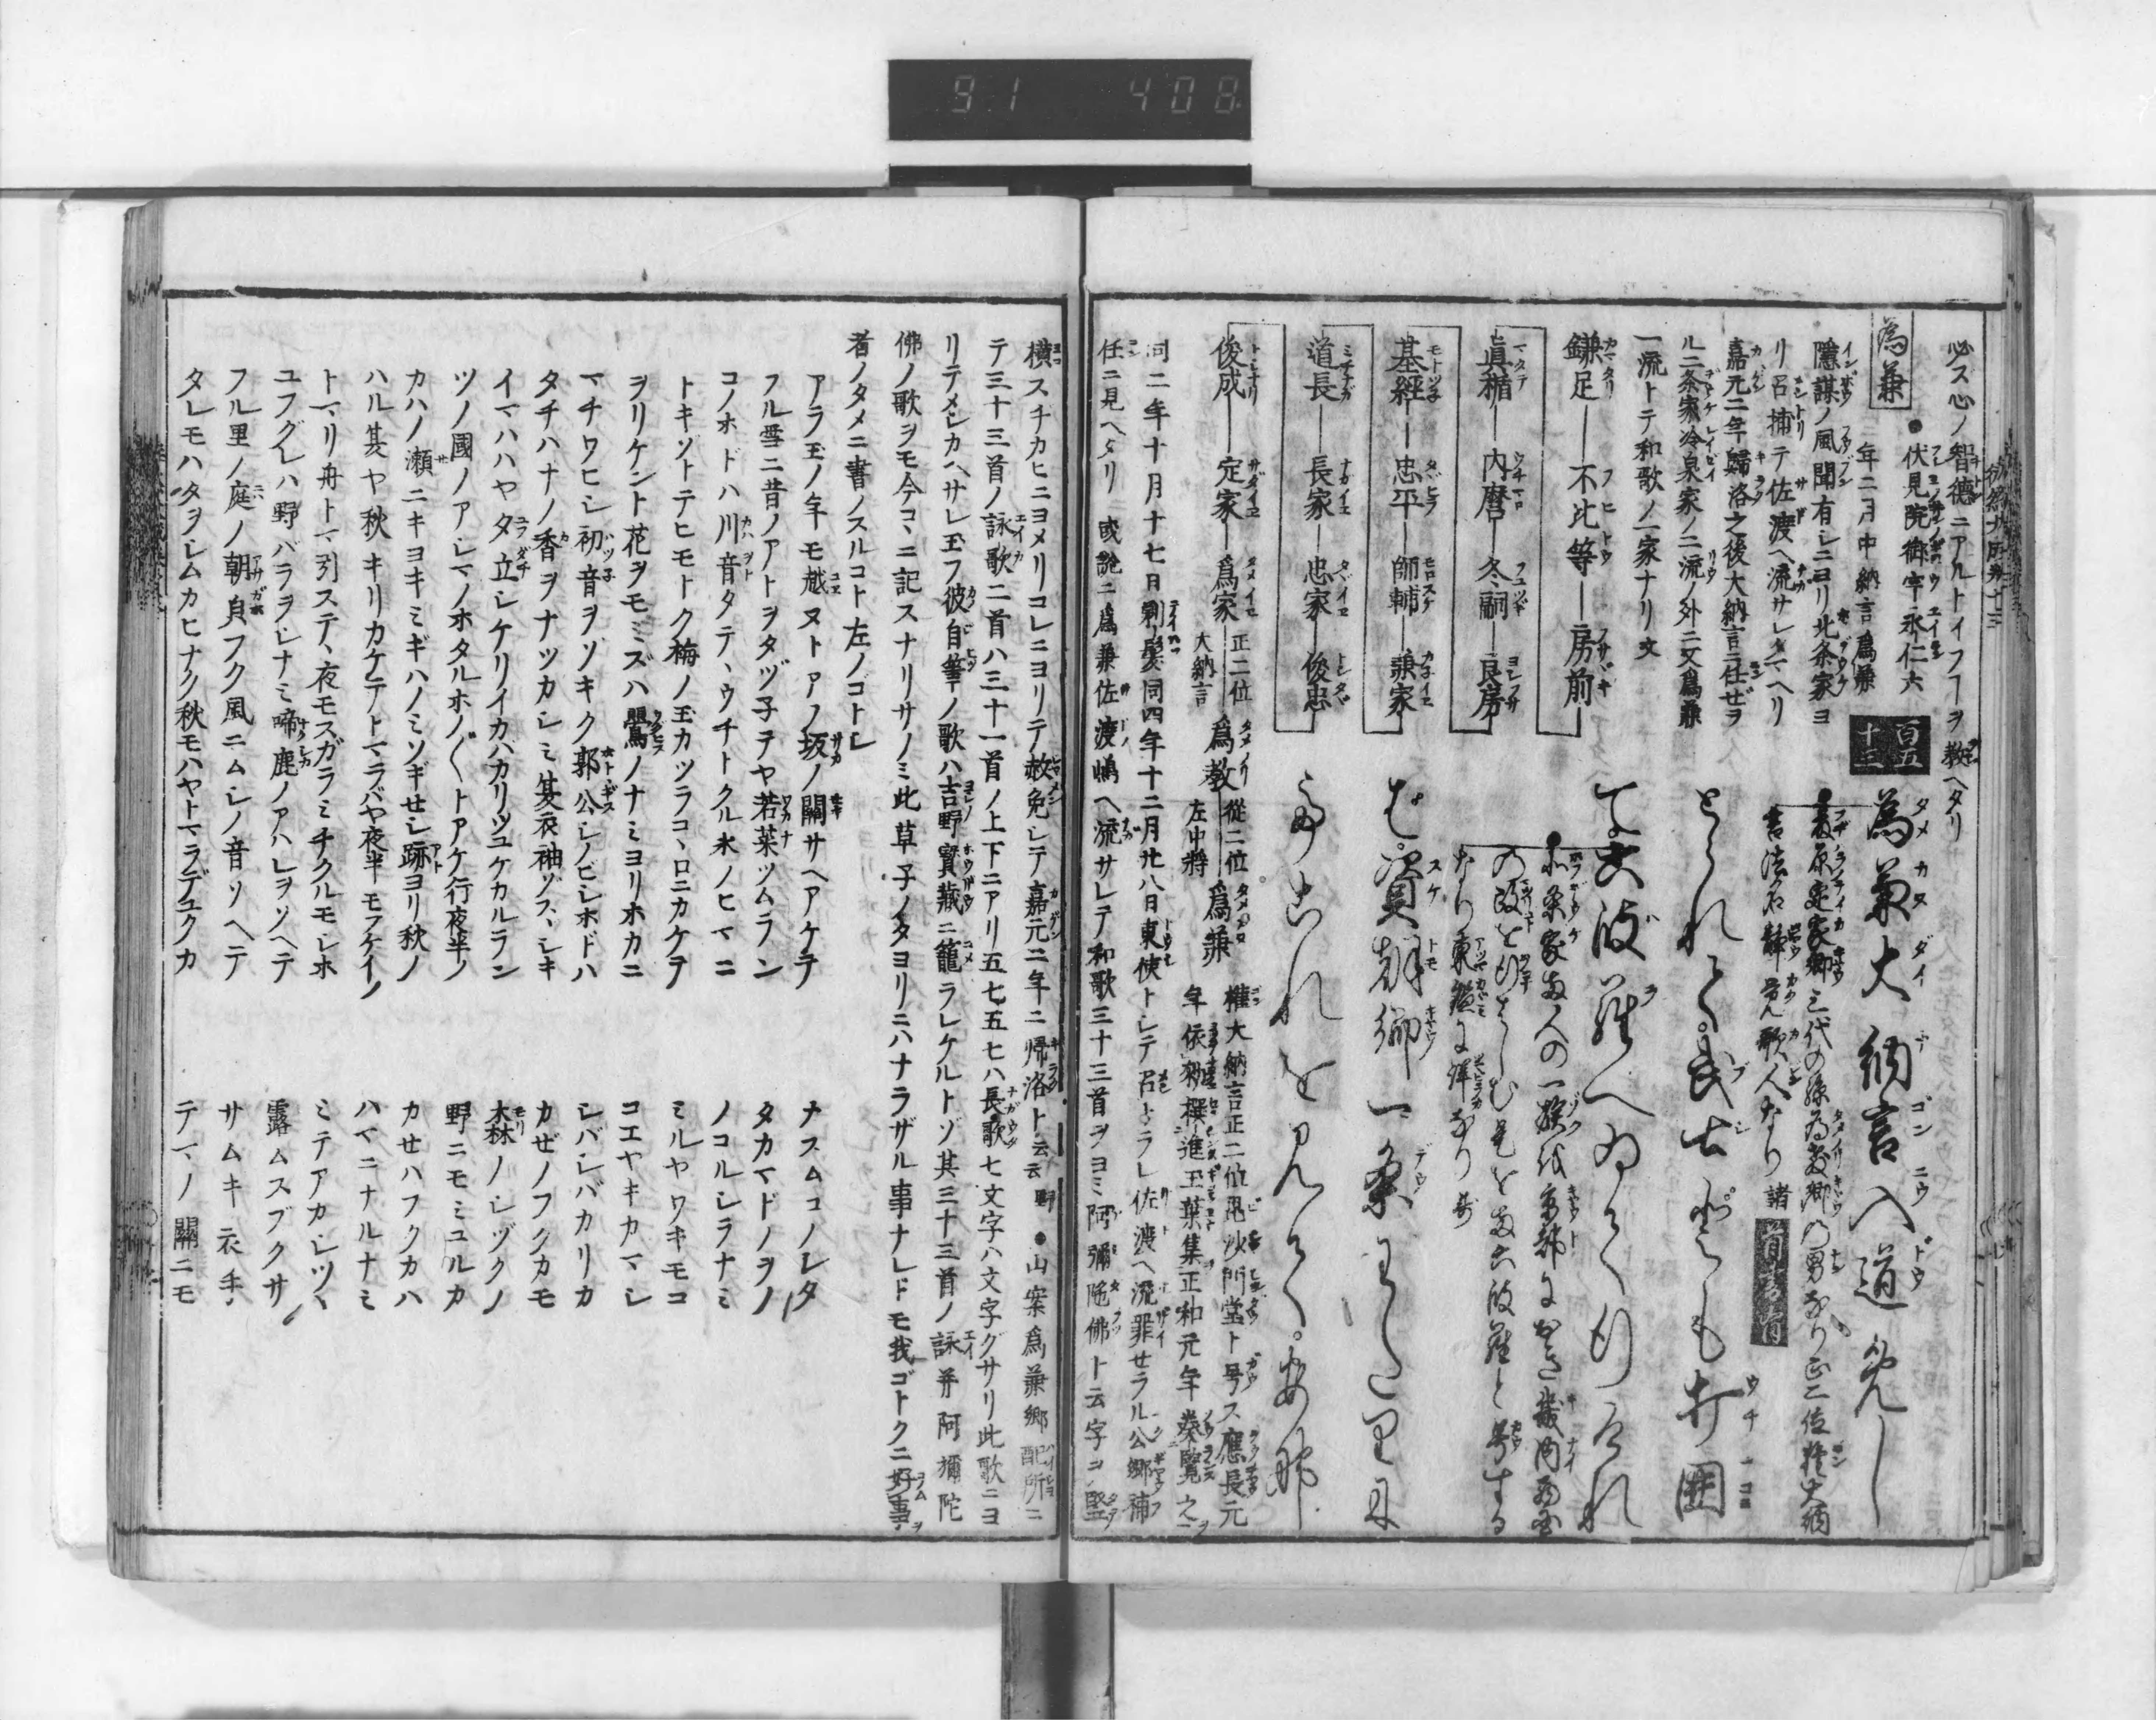 91 408
必ズ心ノ智德ニアルトイフ一ヲ教ヘタリ
爲兼
●伏見院御宇永仁六
年二月中納言爲兼
隱謀ノ風聞有シニヨリ北条家ヨ
リ召捕テ佐渡ヘ流サレタマヘリ
嘉元二年歸洛之後大納言ニ任ゼラ
ル二条家冷泉家ノ二流ノ外ニ又爲兼
一流トテ和歌ノ一家ナリ文
鎌足―不比等―房前
眞楯―内麿―冬嗣―良房
基經―忠平―師輔―兼家
道長―長家―忠家―俊忠
俊成―定家―爲家 正二位 大納言
爲教 從二位 左中將
爲兼
百五十三
為兼大納言入道めし
藤原定家卿三代の孫為教卿の男なり正二位權大納
言法名靜覺歌人なり諸
とられて武士どもうち囲
て六波羅へゐて行けれ
北条家両人の一族代京都におき畿内西国
の政を行はしむ是を両六波羅と号する
なり東鑑に詳なり
ば資朝卿一条わたりに
てこれを見てあな
權大納言正二位毘沙門堂ト号ス應長元
年依勅撰進玉葉集正和元年奏覽之
同二年十月十七日剃髮同四年十二月廿八日東使トシテ召トラレ佐渡ヘ流罪セラル公卿補
任ニ見ヘタリ 或說ニ爲兼佐渡嶋ヘ流サレテ和歌三十三首ヲヨミ阿彌陀佛ト云字ヲ竪
横スヂカヒニヨメリコレニヨリテ赦免シテ嘉元二年ニ帰洛ト云云 野 ●山案爲兼卿配所ニ
テ三十三首ノ詠歌二首ハ三十一首ノ上下ニアリ五七五七ハ長歌七文字ハ文字グサリ此歌ニヨ
リテメシカヘサレ玉フ彼自筆ノ歌ハ吉野寶藏ニ籠ラレケルトゾ其三十三首ノ詠并阿彌陀
佛ノ歌ヲモ今コヽニ記スナリサノミ此草子ノタヨリニハナラザル事ナレドモ我ゴトクニ好事
者ノタメニ書ノスルコト左ノゴトシ
アラ玉ノ年モ越ヌトアノ坂ノ關サヘアケテ ナスムコノレタ
フル雪ニ昔ノアトヲタヅ子テヤ若菜ツムラン タカマドノヲノ
コノホドハ川音タテヽウチトクル氷ノヒマニ ノコルシラナミ
トキソトテヒモトク梅ノ玉カツラコヽロニカケヲ ミルヤワキモコ
ヲリケント花ヲモミズハ鶯ノナミヨリホカニ コエヤキカマシ
マチワビシ初音ヲソキク郭公シノビシホドハ シバシバカリカ
タチハナノ香ヲナツカシミ夏衣袖ヅスヽシキ カゼノフクカモ
イマハハヤタ立シケリイカバカリツユケカルラン 木森ノシヅクノ
ツノ國ノアシマノホタルホノ〴〵トアケ行夜半ノ 野ニモミユルカ
カハノ瀬ニキヨキミギハノミソギセシ跡ヨリ秋ノ カセハフクカハ
ハル夏ヤ秋キリカケテトマラバヤ夜半モフケイノ ハマニナルナミ
トマリ舟トマ引ステヽ夜モスガラミチクルモシホ ミテアカシツヽ
ユフグレハ野バラヲシナミ啼鹿ノアハレヲソヘテ 露ムスブクサ
フル里ノ庭ノ朝皃フク風ニムシノ音ソヘテ サムキ衣手
タレモハタヲシムカヒナク秋モハヤトマラデユクカ テマノ關ニモ